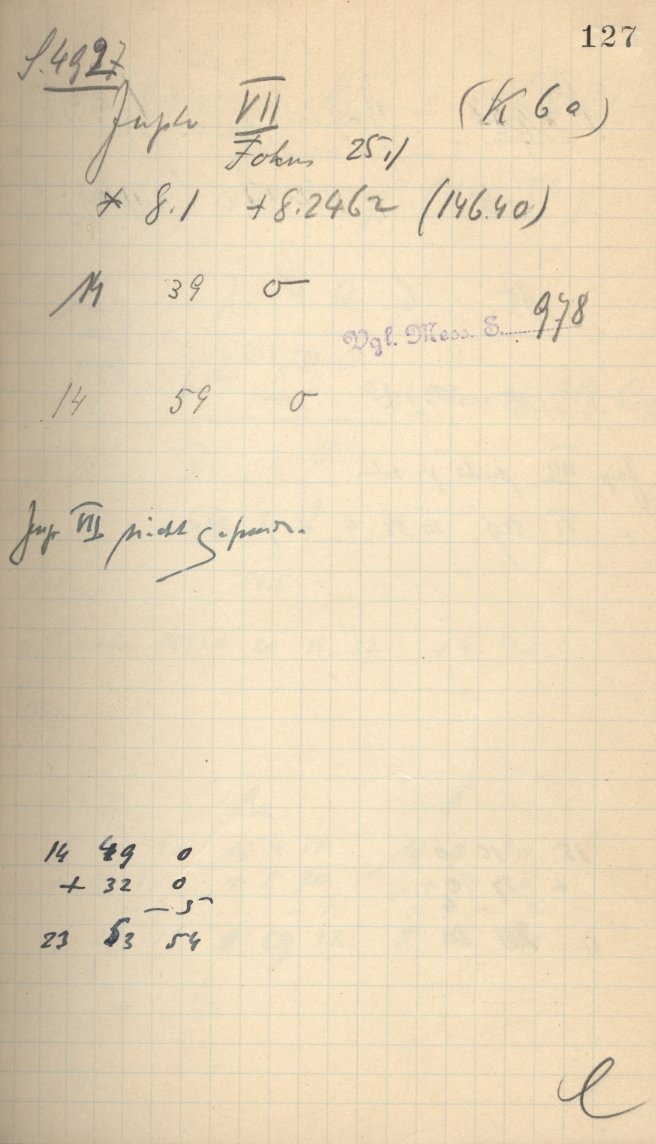 127
S.4927
Jupiter VII (K 6 a)
Fokus 25,1
* 8.1 +8.2462 (146.40)
14 39 0
Vgl. Mess. S. 978
14 59 0
Jup VII nicht gefund.
14 49 0
+ 32 0
- 5
23 53 54